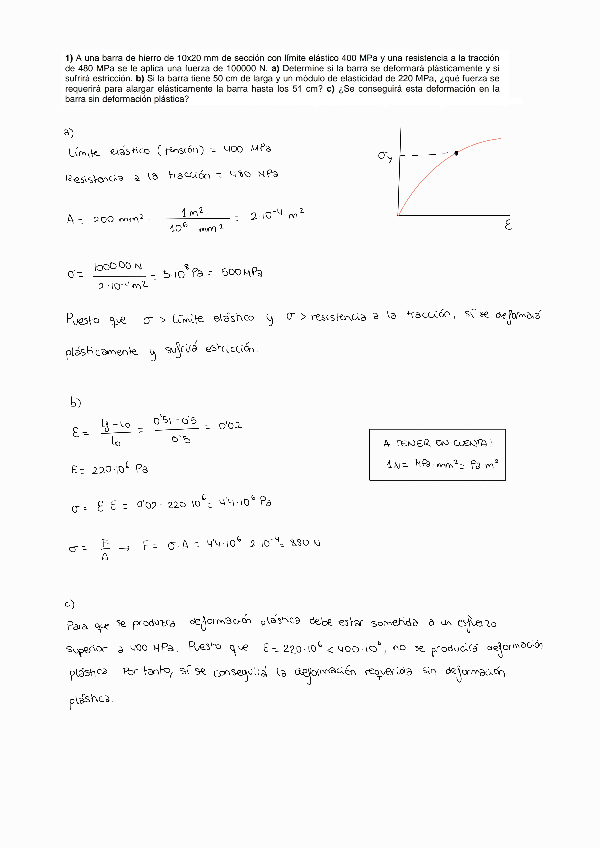 1) A una barra de hierro de 10x20 mm de sección con límite elástico 400 MPa y una resistencia a la tracción
de 480 MPa se le aplica una fuerza de 100000 N. a) Determine si la barra se deformará plásticamente y si
sufrirá estricción. b) Si la barra tiene 50 cm de larga y un módulo de elasticidad de 220 MPa, ¿qué fuerza se
requerirá para alargar elásticamente la barra hasta los 51 cm? c) ¿Se conseguirá esta deformación en la
barra sin deformación plástica?
a)
Límite elástico (tensión) = 400 MPa
Resistencia a la tracción = 480 MPa
σy
ε
A = 200 mm² · 1 m² / 10⁶ mm² = 2·10⁻⁴ m²
σ = 100000 N / 2·10⁻⁴ m² = 5·10⁸ Pa = 500 MPa
Puesto que σ > Límite elástico y σ > resistencia a la tracción, sí se deformará
plásticamente y sufrirá estricción.
b)
ε = lf - lo / lo = 0'51 - 0'5 / 0'5 = 0'02
E = 220·10⁶ Pa
σ = E ε = 0'02 · 220·10⁶ = 4'4·10⁶ Pa
σ = F / A → F = σ·A = 4'4·10⁶ · 2·10⁻⁴ = 880 N
A TENER EN CUENTA:
1N = MPa mm² = Pa m²
c)
Para que se produzca deformación plástica debe estar sometida a un esfuerzo
superior a 400 MPa. Puesto que E = 220·10⁶ < 400·10⁶, no se producirá deformación
plástica. Por tanto, sí se conseguirá la deformación requerida sin deformación
plástica.